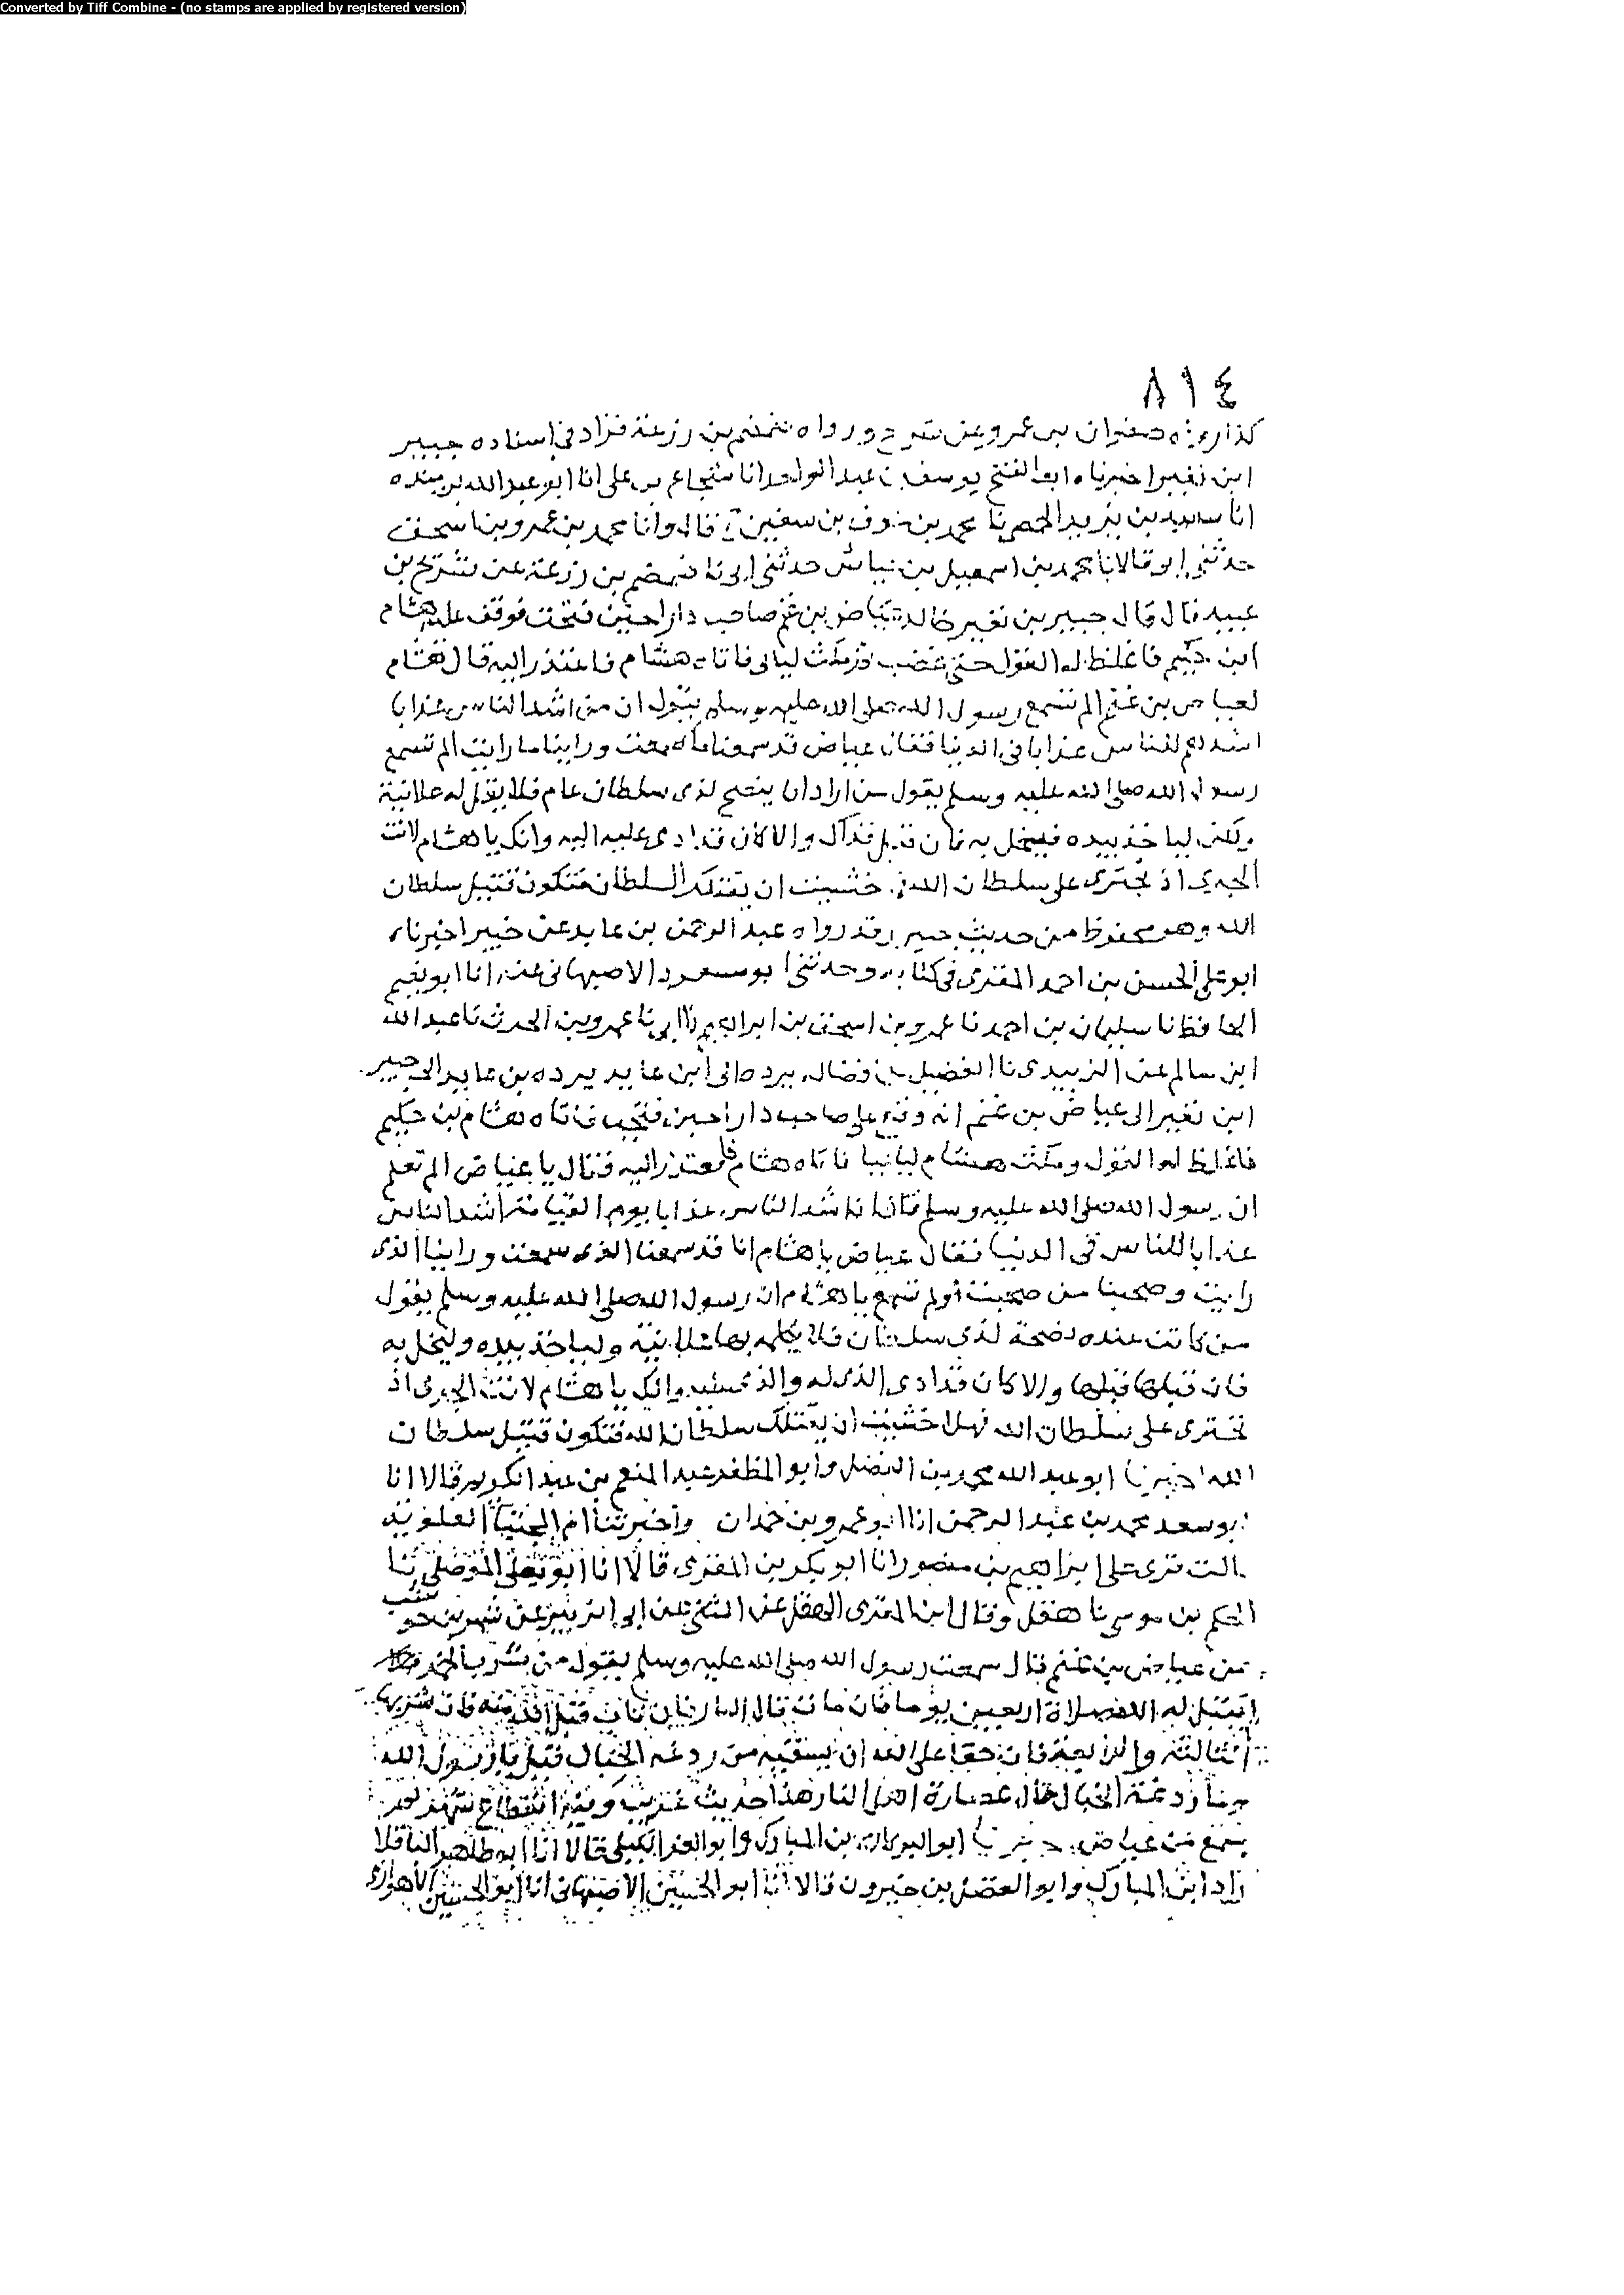 Converted by Tiff Combine - (no stamps are applied by registered version)
٨١٤
كذا رواه صفوان بن عمرو عن شريح ورواه ضمضم بن زرعة فزاد في اسناده جبير
ابن نفير اخبرناه ابو الفتح يوسف بن عبد الواحد انا شجاع بن على انا ابو عبد الله بن منده
انا سعيد بن يزيد الحمصي نا محمد بن عوف بن سفين قال وانا محمد بن عمرو بن اسحق
حدثني ابي قالا نا محمد بن اسمعيل بن عياش حدثني ابي نا ضمضم بن زرعة عن شريح بن
عبيد قال قال جبير بن نفير عياض بن غنم صاحب دارا حين فتحت فوقف عليه هشام
ابن حكيم فاغلظ له القول حتى غضب ثم مكث ليالى فاتاه هشام فاعتذر اليه قال هشام
لعياض بن غنم الم تسمع رسول الله صلى الله عليه وسلم يقول ان من اشد الناس عذابا
اشدهم للناس عذابا في الدنيا فقال عياض قد سمعنا ما سمعت وراينا ما رايت الم تسمع
رسول الله صلى الله عليه وسلم يقول من اراد ان ينصح لذى سلطان عام فلا يقل له علانية
ولكن لياخذ بيده فيخل به فان قبل فذاك والا كان قد ادى عليه اليه وانك يا هشام لانت
الجري اذ تجترى على سلطان الله خشيت ان يقتلك السلطان فتكون قتيل سلطان
الله وهو محفوظ من حديث جبير وقد رواه عبد الرحمن بن عايد عن جبير اخبرناه
ابو على الحسن بن احمد المقرى في كتابه وحدثني ابو مسعود الاصبهاني عنه انا ابو نعيم
الحافظ نا سليمان بن احمد نا عمرو بن اسحق بن ابراهيم نا ابى نا عمرو بن الحرث نا عبد الله
ابن سالم عن الزبيدى نا الفضيل بن فضاله يرده الى ابن عايد يرده بن عايد الى جبير
ابن نفير الى عياض بن غنم انه وقع على صاحب دارا حين فتحت فاتاه هشام بن حكيم
فاغلظ له القول ومكث هشام ليا ليا فاتاه هشام معتذرا اليه فقال يا عياض الم تعلم
ان رسول الله صلى الله عليه وسلم قال ان اشد الناس عذابا يوم القيامة اشد الناس
عذابا للناس في الدنيا فقال عياض يا هشام انا قد سمعنا الذى سمعت وراينا الذى
رايت وصحبنا من صحبت أولم تسمع يا هشام ان رسول الله صلى الله عليه وسلم يقول
من كانت عنده نصحة لذى سلطان فلا يكلمه بها علانية ولياخذ بيده وليخل به
فان قبلها قبلها والا كان قد ادى الذى له والذى عليه وانك يا هشام لانت الجرى اذ
تجترى على سلطان الله فهلا خشيت ان يقتلك سلطان الله فتكون قتيل سلطان
الله اخبرنا ابو عبد الله محمد بن الفضل وابو المظفر عبد المنعم بن عبد الكريم قالا انا
ابو سعد محمد بن عبد الرحمن انا ابو عمرو بن حمدان واخبرتنا ام المجتبا العلوية
قالت قرى على ابراهيم بن منصور انا ابو بكر بن المقرى قالا انا ابو يعلى الموصلى نا
الحكم بن موسى نا هقل وقال ابن المقرى الهقل عن المثنى عن ابى الزبير عن شهر بن حوشب
عن عياض بن غنم قال سمعت رسول الله صلى الله عليه وسلم يقول من شرب الخمر
لم تقبل له صلاة اربعين يوما فان مات فالى النار فان تاب قبل الله منه فان شربها
الثالثة والرابعة كان حقا على الله ان يسقيه من ردغة الخبال فقيل يا رسول الله
وما ردغة الخبال قال عصارة اهل النار هذا حديث غريب وفيه انقطاع شهر لم
يسمع من عياض اخبرنا ابو البركات بن المبارك وابو العز الكيلى قالا انا ابو طاهر الباقلا
زاد ابن المبارك وابو الفضل بن خيرون قالا انا ابو الحسين الاصبهانى انا ابو الحسين الاهوازى